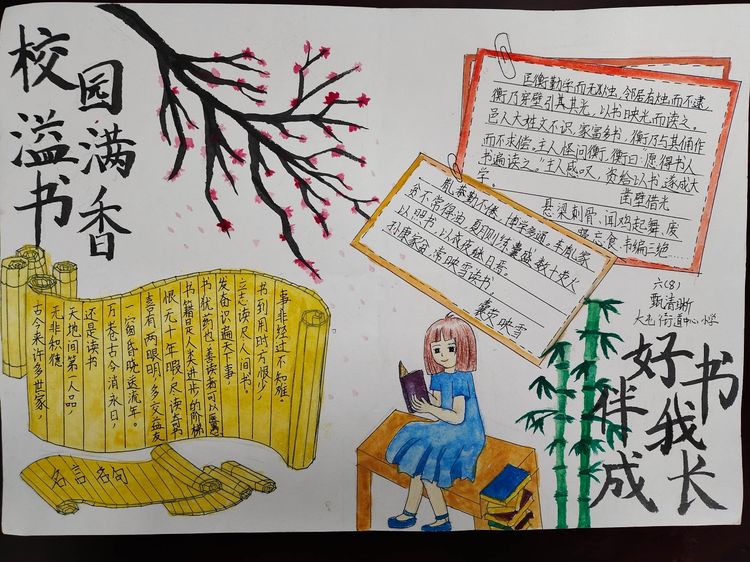 校园
溢满
书香
匡衡勤学而无烛,邻居有烛而不逮,
衡乃穿壁引其其光,以书映光而读之。
邑人大姓文不识,家富多书,衡乃与其佣作
而不求偿。主人怪问衡,衡曰:愿得书人
书遍读之。"主人感叹,资给以书,遂成大
学。
凿壁借光
悬梁刺骨、闻鸡起舞、废
寝忘食、书编三绝……
胤恭勤不倦,博学多通。车胤家
贫不常得油,夏月则练囊盛数十萤火
以明书,以夜继日焉。
孙康家贫,常映雪读书。
囊萤映雪
古今来许多世家,
无非积德
天地间第一人品,
还是读书
万卷古今消永日,
一窗昏晓送流年。
喜有两眼明,多交益友
恨无十年暇,尽读奇书
书籍是人类进步的阶梯
书犹药也,善读者可以医愚
发奋识遍天下事,
立志读尽人间书。
书到用时方恨少,
事非经过不知难。
名言名句
六(8)
甄清晰
大屯街道中心小学
好书
伴我
成长